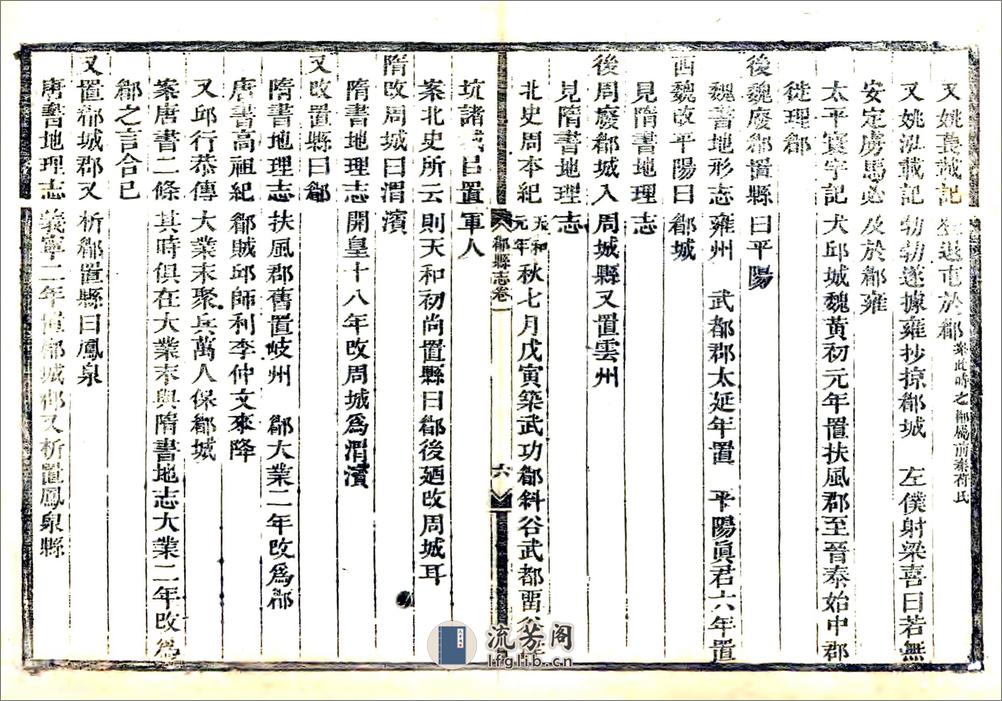 又姚萇載記 登退屯於郿 案此時之郿屬前秦苻氏
又姚泓載記 勃勃遂據雍抄掠郿城 左僕射梁喜曰若無
安定虜馬必及於郿雍
太平寰宇記 犬邱城魏黃初元年置扶風郡至晉泰始中郡
徙理郿
後魏廢郡置縣曰平陽
魏書地形志 雍州 武都郡太延年置 平陽眞君六年置
西魏改平陽曰郿城
見隋書地理志
後周廢郿城入周城縣又置雲州
見隋書地理志
北史周本紀 天和元年秋七月戊寅築武功郿斜谷武都留谷
郿縣志卷一
六
坑諸城㠯置軍人
案北史所云則天和初尚置縣曰郿後廼改周城耳
隋改周城曰渭濱
隋書地理志 開皇十八年改周城爲渭濱
又改置縣曰郿
隋書地理志 扶風郡舊置岐州 郿大業二年改爲郿
唐書高祖紀 郿賊邱師利李仲文來降
又邱行恭傳 大業末聚兵萬人保郿城
案唐書二條其時俱在大業末與隋書地志大業二年改爲
郿之言合已
又置郿城郡又析郿置縣曰鳳泉
唐書地理志 義寧二年置郿城郡又析置鳳泉縣
流芳阁
lfglib.cn